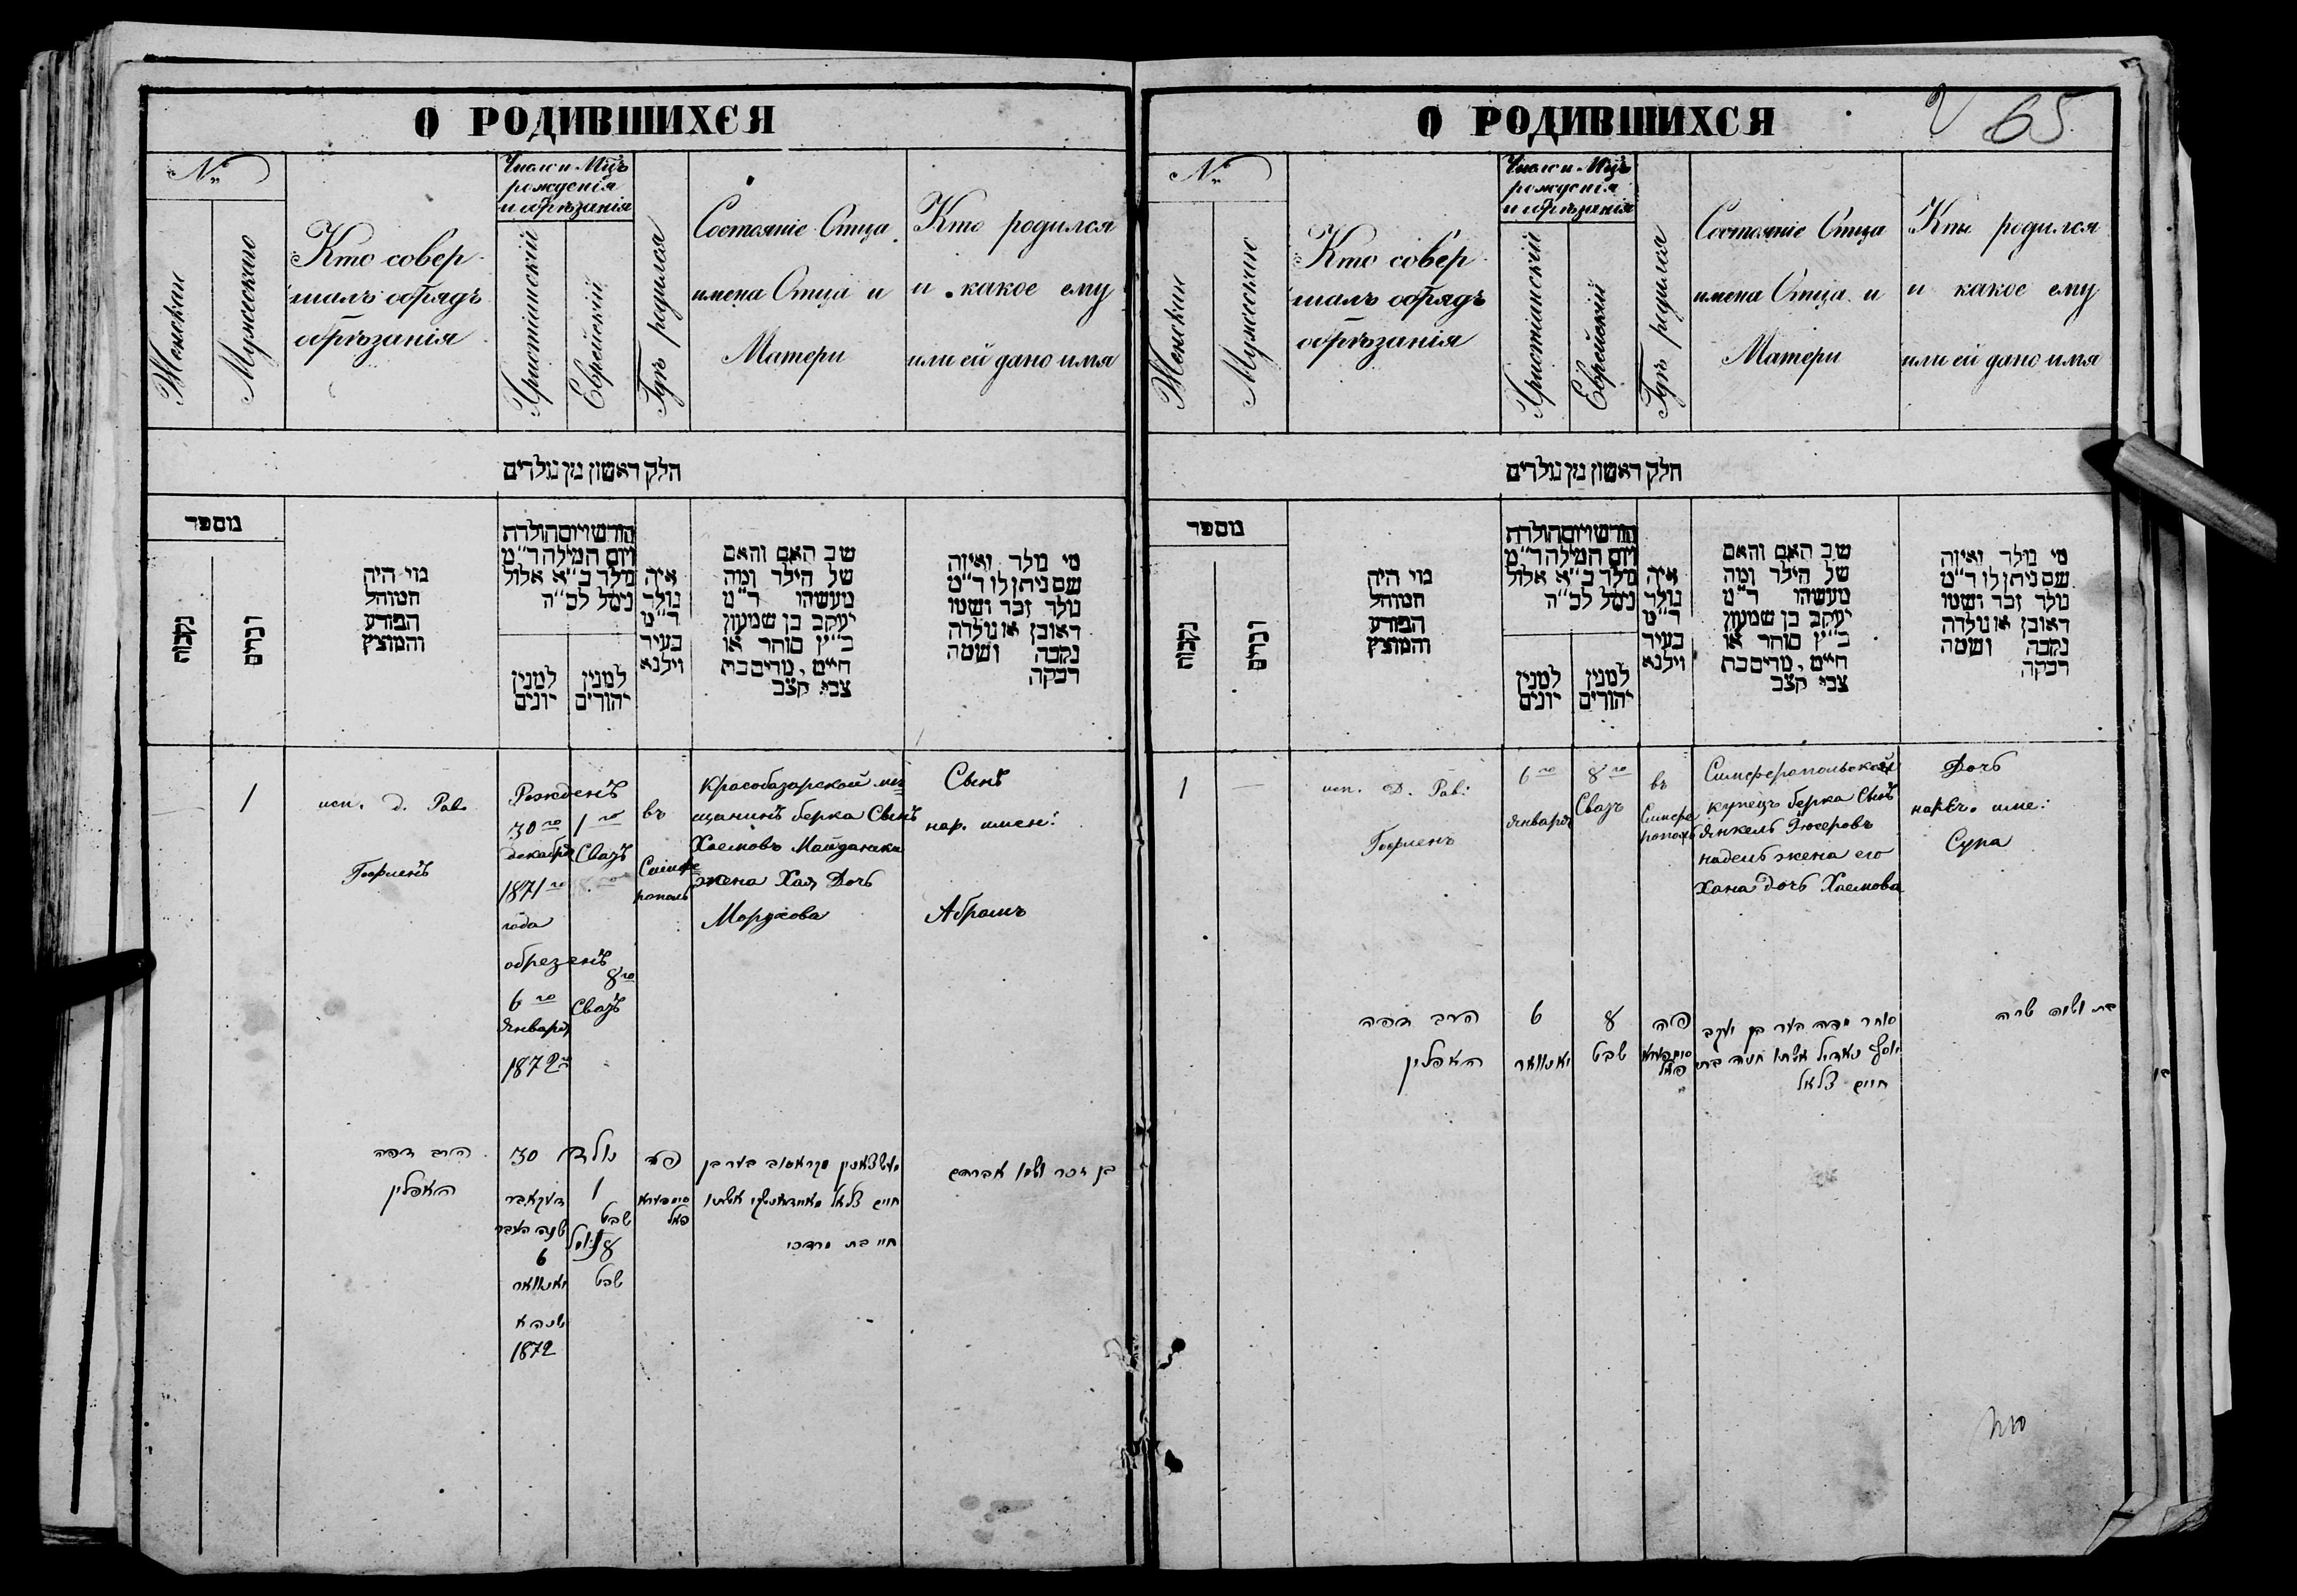 О РОДИВШИХСЯ
№
Женскаго
Мужескаго
Кто совер
шалъ обрядъ
обрѣзанія
Число и Мцъ
рожденія
и обрѣзанія
Христіанскій
Еврейскій
Гдѣ родился
Состояніе Отца
имена Отца и
Матери
Кто родился
и какое ему
или ей дано имя
חלק ראשון מן נולדים
מספר
נקבות
זכרים
מי היה
המוהל
הפורע
והמוצץ
חודש ויום הולדת
ויום המילה ד״מ
נולד כ״א אלול
נימל לב״ה
למנין
יונים
למנין
יהודים
איה
נולד
ד״מ
בעיר
וילנא
שב האם והאם
של הילד ומה
מעשהו ד״מ
יעקב בן שמעון
כ״ץ סוחר או
חיים, מרים בת
צבי קצב
מי נולד ואיזה
שם ניתן לו ד״מ
נולד זכר ושמו
ראובן או נולדה
נקבה ושמה
רבקה
1
исп. д. Рав.
Рожденъ
30го
декабря
1871го
года
обрезенъ
6го
Января
1872го
1го
Свазъ
8го
Свазъ
въ
Симфе
рополь
Красобазарской ме
щанинъ берка Сынъ
Хаемовъ
жена Хая Дочь
Мордхова
Сынъ
нар. имен:
Абрамъ
הרב דפה
30
דעקאבר
6
יאנוואר
1872
נולד
1
שבט
8
שבט
פה
חיים
חי׳ בת מרדכי
בן זכר ושמו אברהם
О РОДИВШИХСЯ
65
№
Женскаго
Мужескаго
Кто совер
шалъ обрядъ
обрѣзанія
Число и Мцъ
рожденія
и обрѣзанія
Христіанскій
Еврейскій
Гдѣ родился
Состояніе Отца
имена Отца и
Матери
Кто родился
и какое ему
или ей дано имя
חלק ראשון מן נולדים
מספר
נקבות
זכרים
מי היה
המוהל
הפורע
והמוצץ
חודש ויום הולדת
ויום המילה ד״מ
נולד כ״א אלול
נימל לב״ה
למנין
יונים
למנין
יהודים
איה
נולד
ד״מ
בעיר
וילנא
שב האם והאם
של הילד ומה
מעשהו ד״מ
יעקב בן שמעון
כ״ץ סוחר או
חיים, מרים בת
צבי קצב
מי נולד ואיזה
שם ניתן לו ד״מ
נולד זכר ושמו
ראובן או נולדה
נקבה ושמה
רבקה
1
исп. Д. Рав:
6го
Января
8го
Свазъ
въ
Симфе
рополь
Симферопольской
купецъ берка Сынъ
Янкель
надель жена его
Хана дочь Хаемова
Дочь
нарѣч. име:
Сура
הרב דפה
6
יאנוואר
8
שבט
פה
סוחר
יוסף נאדיל אשתו חנה בת
חיים
בת ושמה שרה